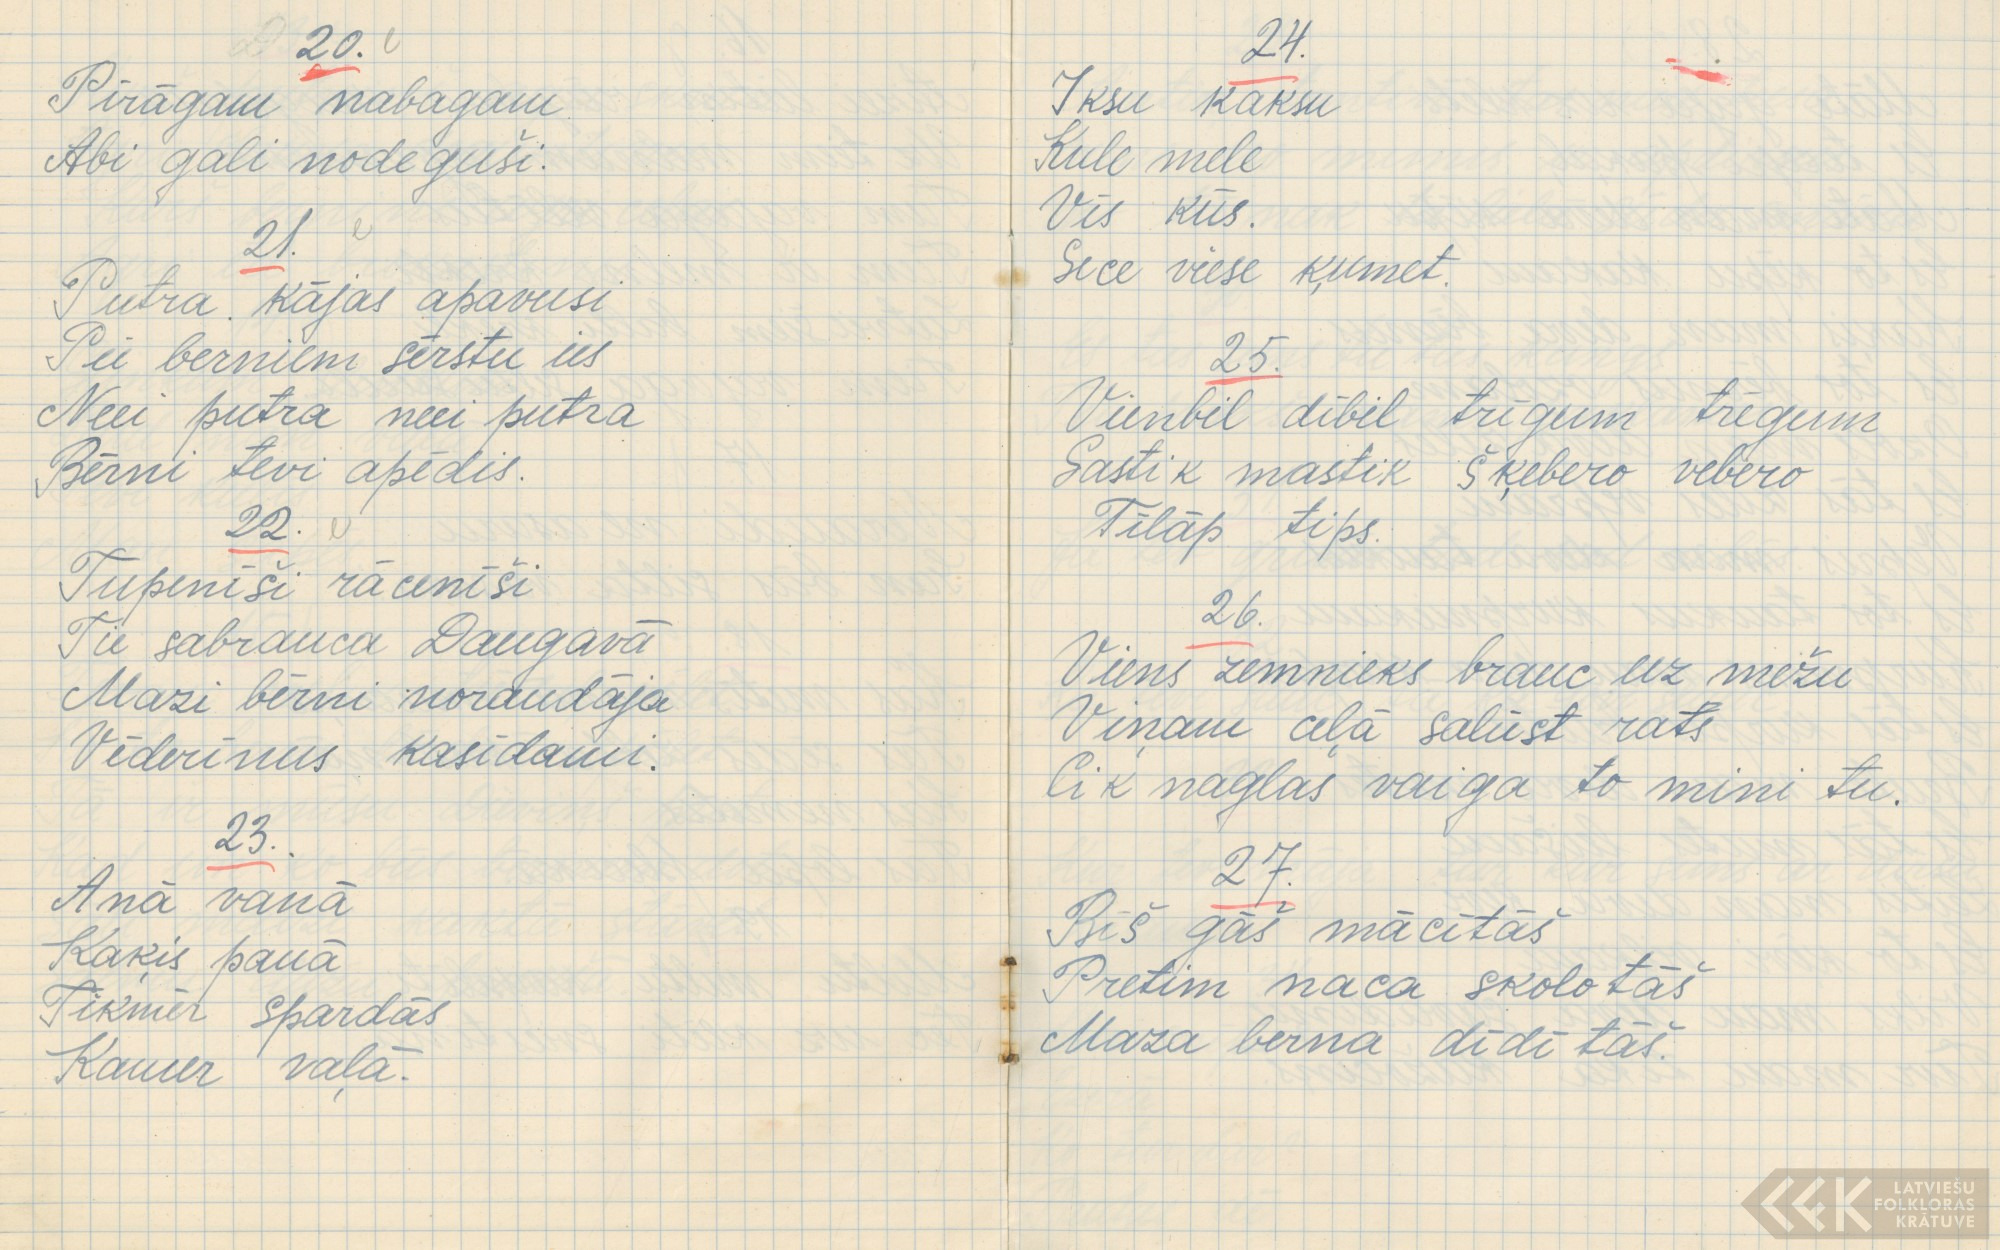 20.
Pīrāgam nabagam
Abi gali nodeguši.
21.
Putra kājas apavusi
Pie berniem sērstu ies
Neei putra neei putra
Bērni tevi apēdis.
22.
Tupenīši rācenīši
Tie sabrauca Daugavā
Mazi bērni noraudāja
Vēderinus kasīdami.
23.
Anā vanā
Kaķis panā
Tikmēr spardās
Kamer vaļā.
24.
Iksu kaksu
Kule mele
Vīs kūs.
Sece viese ķumet.
25.
Vienbil dibil trīgum trēgum
Sastik mastik šķebero vebero
Tīlāp tips.
26.
Viens zemnieks brauc uz mežu
Viņam ceļā salūst rats
Cik naglas vaiga to mini tu.
27.
Bīš gāš mācītāš
Pretim naca skolotāš
Maza berna dīdītāš.
LATVIEŠU
FOLKLORAS
KRĀTUVE